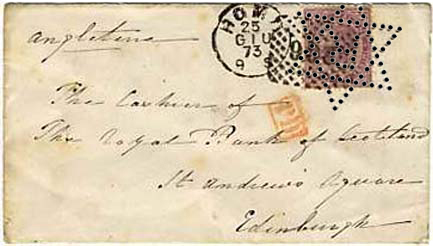 angleterre
ROMA
25
GIU
73
9 S
PD
The Cashier of
The Royal Bank of Scotland
St Andrew's Square
Edinburgh